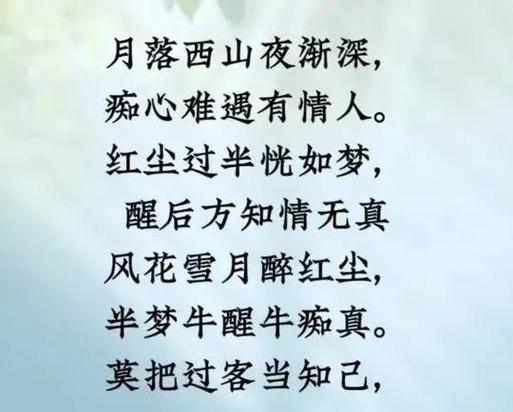 月落西山夜渐深，
痴心难遇有情人。
红尘过半恍如梦，
醒后方知情无真
风花雪月醉红尘，
半梦牛醒牛痴真。
莫把过客当知己，